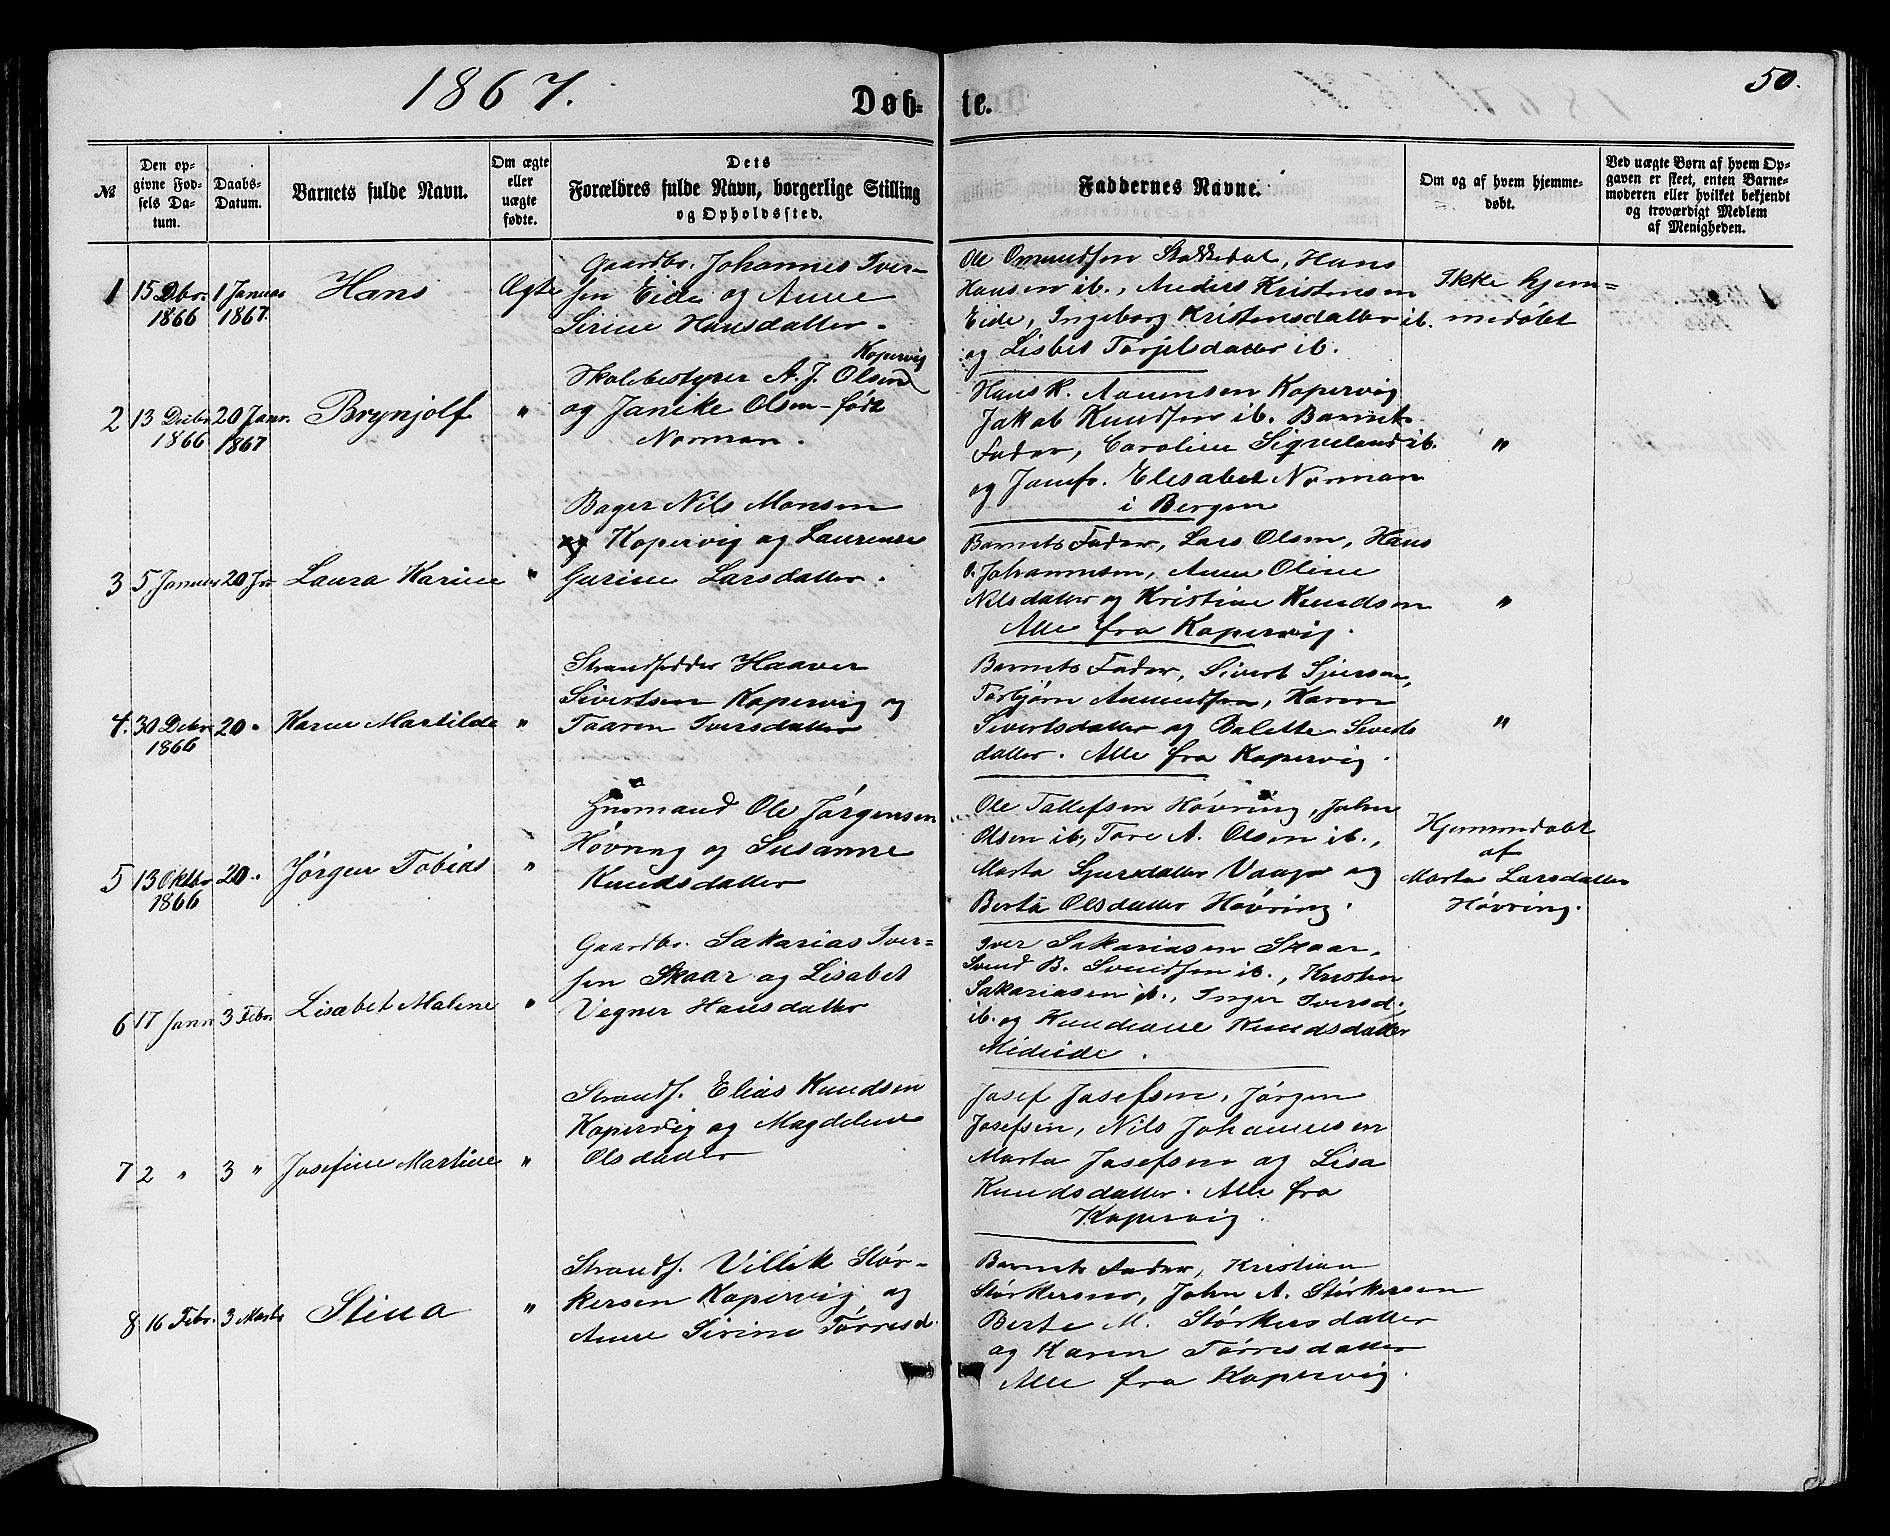 1867.
Døb-
te.
50.
№
Den op-
givne Fød-
sels Da-
tum.
Daabs-
Datum.
Barnets fulde Navn.
Om ægte
eller
uægte
fødte.
Dets
Forældres fulde Navn, borgerlige Stilling
og Opholdssted.
Faddernes Navne.
Om og af hvem hjemme-
døbt.
Ved uægte Børn af hvem Op-
gaven er skeet, enten Barne-
moderen eller hvilket bekjendt
og troværdigt Medlem
af Menigheden.
1
15 Dbr.
1866
1 Januar
1867.
Hans
Ægte
Gaardbr. Johannes Iver-
sen Eide og Anne
Serine Hansdatter.
Ole Omundsen Stokkedal, Hans
Hansen ib., Anders Kristensen
Eide, Ingeborg Kristensdatter ib.
og Lisbet Torjelsdatter ib.
Ikke hjem=
medøbt
2
13 Debr
1866
20 Janr.
1867
Brynjolf
"
Skolebestyrer A. J. Olsen
Kopervig
og Janike Olsen - født
Norman.
Hans R. Aamnsen Kopervig
Jakob Knudsen ib. Barnets
Fader, Caroline Sigveland ib.
og Jomfr. Elesabet Norman
i Bergen
"
3
5 Januar
20 Jr
Laura Karine
"
Bager Nils Monsen
Kopervig og Laurense
Gurine Larsdatter.
Barnets Fader, Lars Olsen, Hans
O. Johannesen, Anne Oline
Nilsdatter og Kristine Knudsen
Alle fra Kopervig.
"
4.
30 Debr
1866
20 "
Karen Martilde
"
Strandsidder Haaver
Sivertsen Kopervig og
Taaren Iversdatter
Barnets Fader, Sivert Sjursen,
Torbjørn Amundsen, Karen
Sivertsdatter og Balette Siverts
datter. Alle fra Kopervig.
"
5
13 Oktbr
1866
20 "
Jørgen Tobias
"
Husmand Ole Jørgensen
Høvring og Susanne
Knudsdatter
Ole Tollefsen Høvring, John
Olsen ib., Tore A. Olsen ib.,
Marta Sjursdatter Vaage og
Berta Olsdatter Høvring.
Hjemmedøbt
af
Marta Larsdatter
Høvring.
6
17 Janr
3 Febr.
Lisabet Malene
"
Gaardbr. Sakarias Iver-
sen Skaar og Lisabet
Vegner Hansdatter
Iver Sakariasen Skaar,
Svend B. Svendsen ib., Kristen
Sakariasen ib., Inger Iversd.
ib. og Knudiane Knudsdatter
Mideide.
7
2 "
3 "
Josefine Martine
"
Strands. Elias Knudsen
Kopervig og Magdelene
Olsdatter
Josef Josefsen, Jørgen
Josefsen, Nils Johannesen
Marta Josefsen og Lisa
Knudsdatter. Alle fra
Kopervig.
8
16 Febr.
3 Marts
Stina
"
Strands. Villik Stør-
kersen Kopervig og
Anne Serine Tørresd.
Barnets Fader, Kristian
Størkersen, John A. Størkersen
Berte M. Størkersdatter
og Karen Tørresdatter
Alle fra Kopervig.